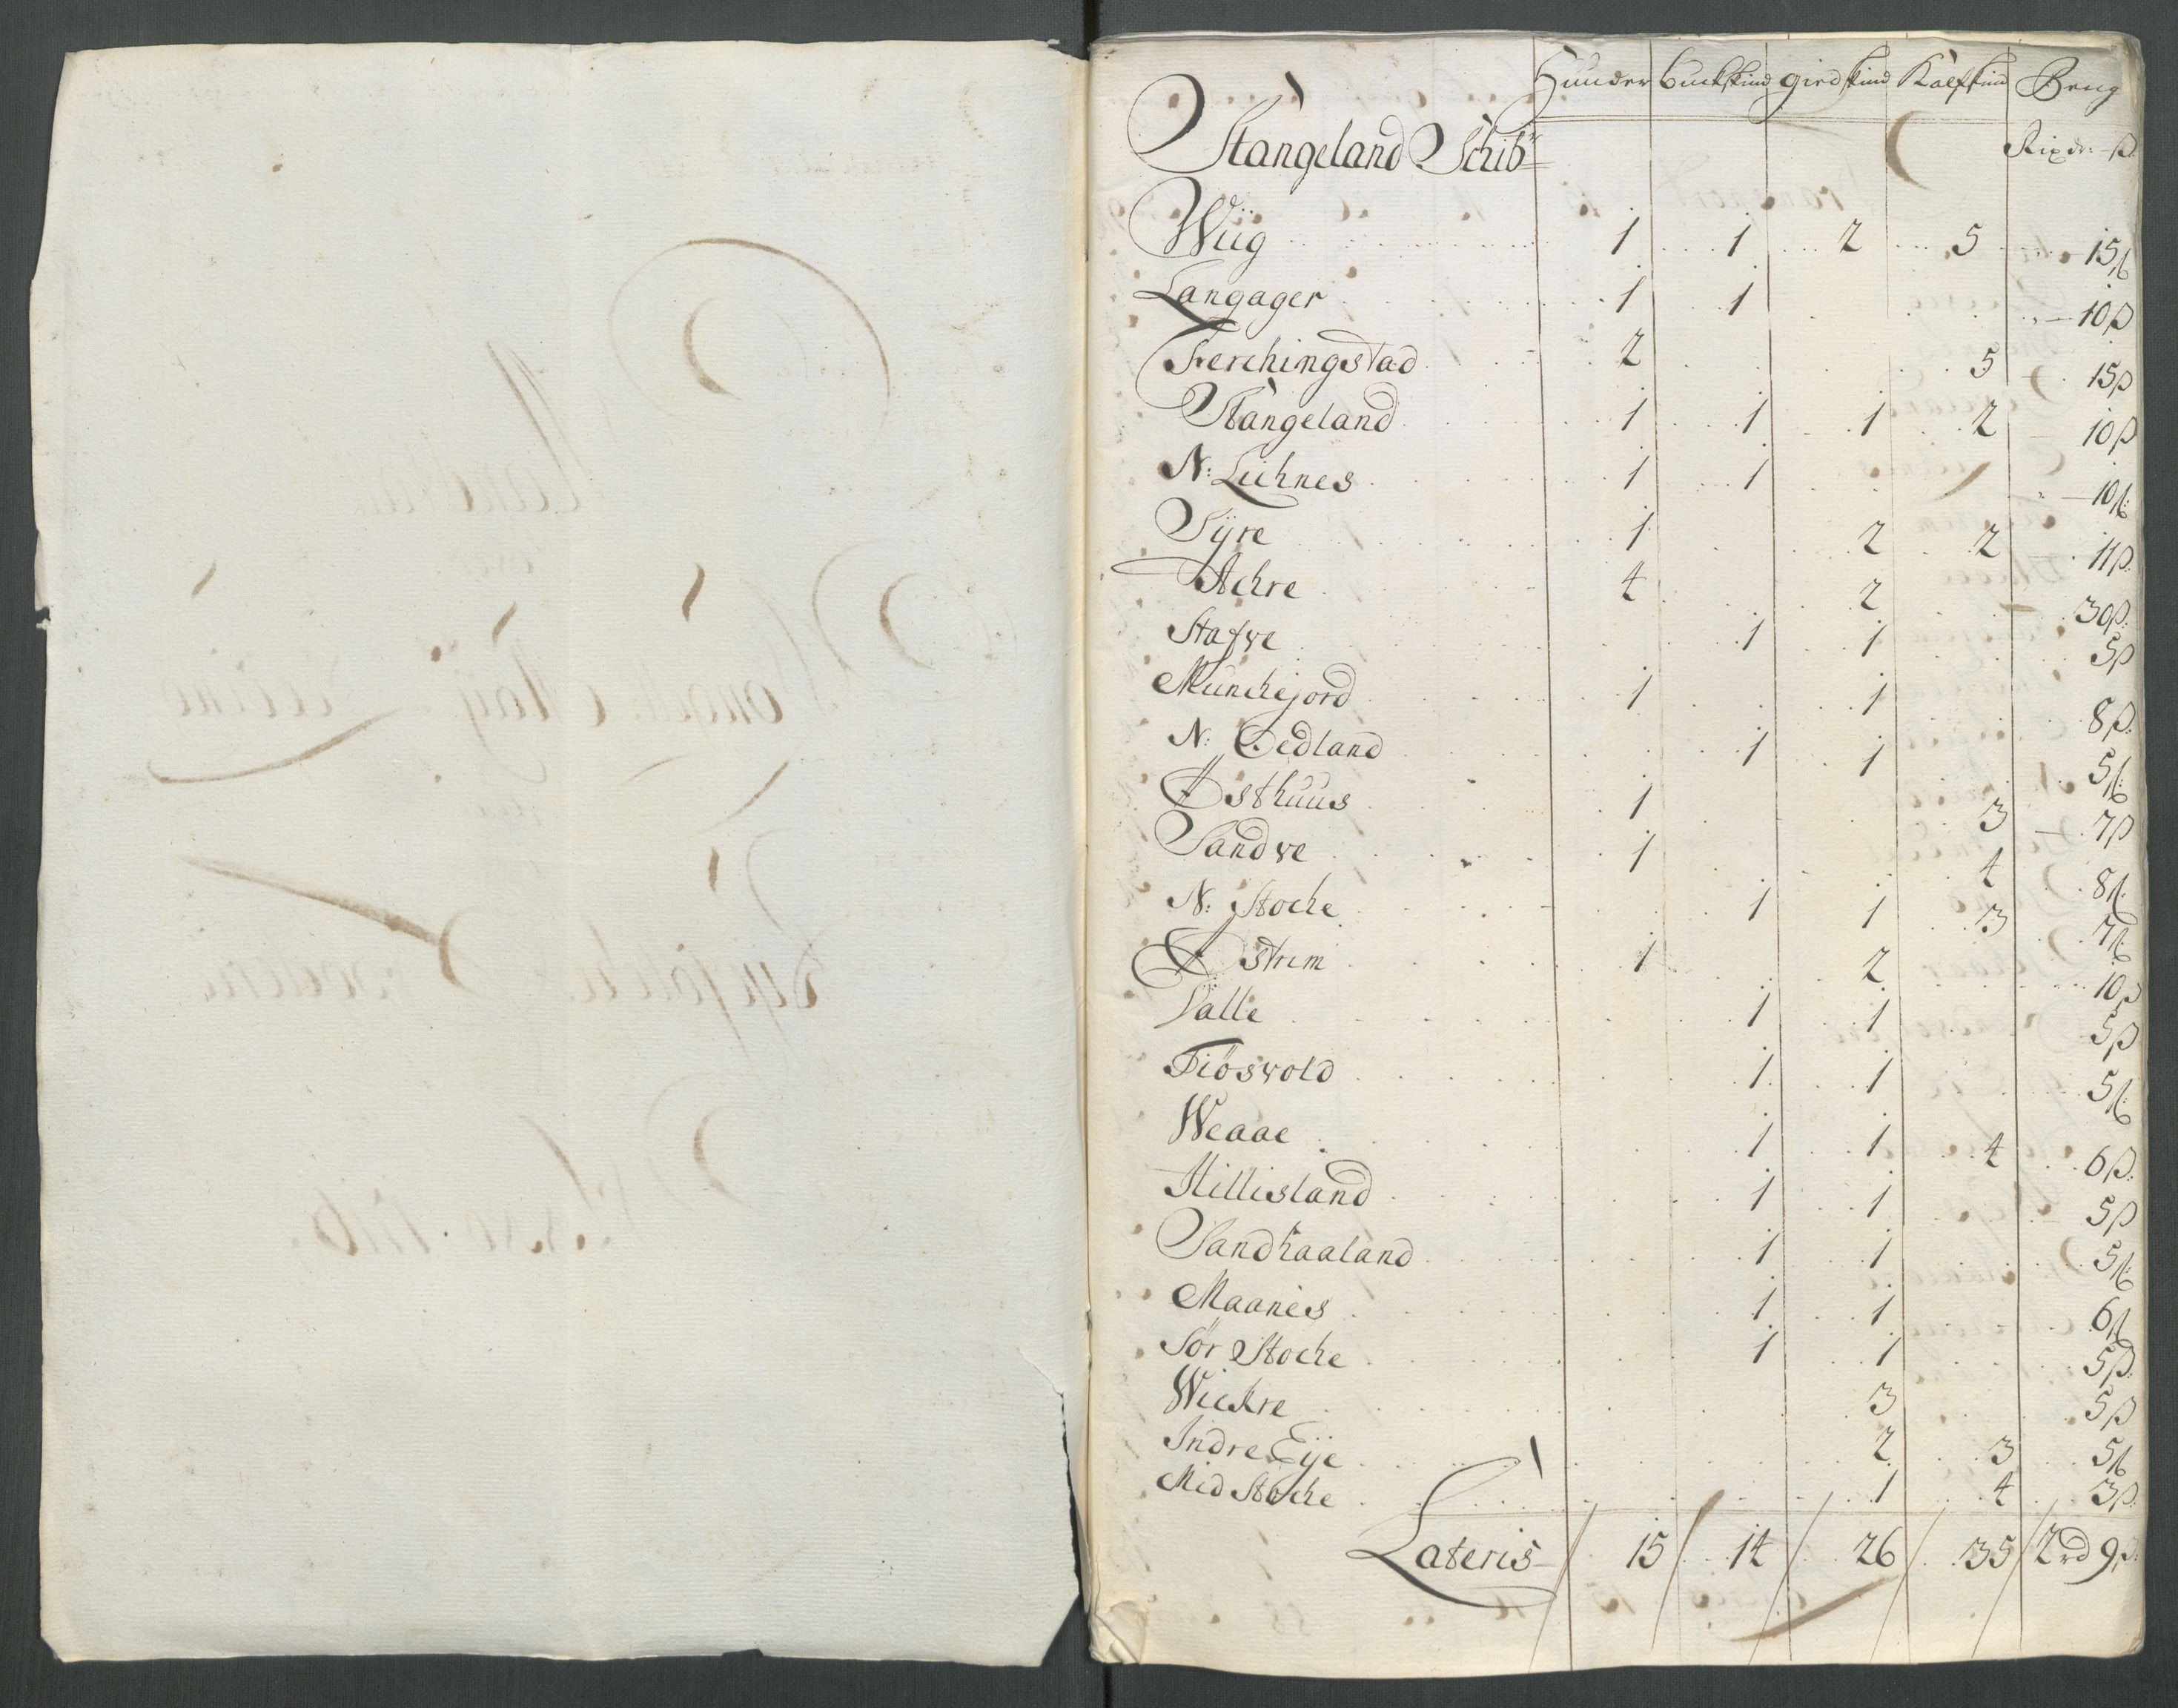 Huuder Buckskind giedskind Kalfskind Peng
Stangeland Schibr Rixdr: ß:
Wiig 1 1 2 5 15ß
Langager 1 1 10ß
Ferchingstad 2 5 15ß
Stangeland 1 1 1 2 10ß
N: Liehnes 1 1 10ß:
Syre 1 2 2 11ß:
Achre 4 2 30ß:
Stafve 1 1 5ß
Munchejord 1 1 8ß:
N: Eedland 1 1 5ß:
Østhuus 1 3 7ß
Sandve 1 4 8ß:
N: Stoche 1 1 3 7ß
Østrim 1 2 10ß
Salle 1 1 5ß
Tiösvold 1 1 5ß:
Weaae 1 1 4 6ß:
Hillisland 1 1 5ß
Sandhaaland 1 1 5ß:
Maanes 1 1 6ß
Sør Stoche 1 1 5ß:
Wickre 3 5ß
Indre Eije 2 3 5ß
Mid Stoche 1 4 3ß:
Lateris 15 14 26 35 2rd 9ß: